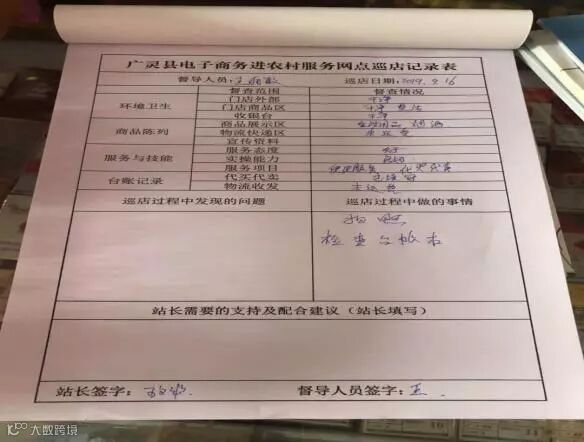 广灵县电子商务进农村服务网点巡店记录表
督导人员: 巡店日期:2019.2.16
督查范围 督查情况
环境卫生 门店外部 干净
门店商品区 干净 整洁
收银台 干净
商品陈列 商品展示区
物流快递区
宣传资料
服务与技能 服务态度 好
实操能力
服务项目 便民服务
台账记录 代买代卖
物流收发
巡店过程中发现的问题 巡店过程中做的事情
拍照
检查台账本
站长需要的支持及配合建议(站长填写)
站长签字: 督导人员签字:王
大数跨境